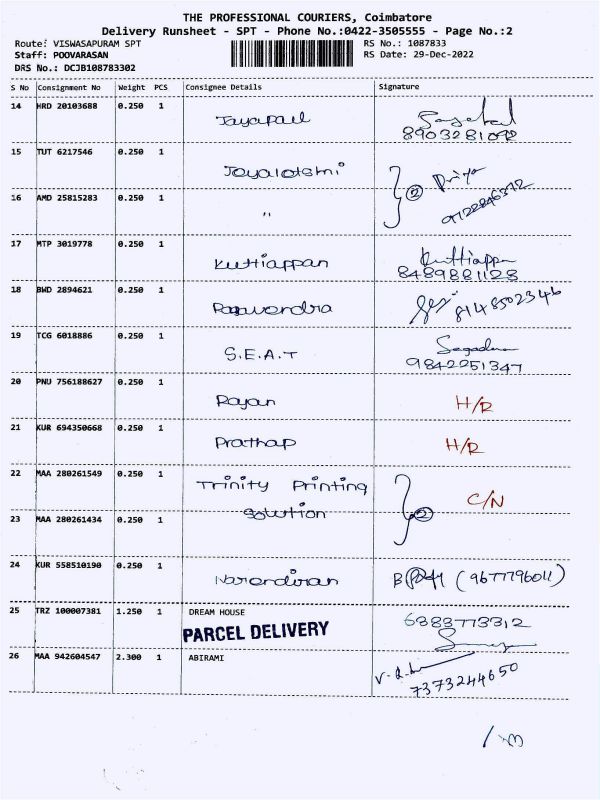 THE PROFESSIONAL COURIERS, Coimbatore
Delivery Runsheet - SPT - Phone No.:0422-3505555 - Page No.:2
Route: VISWASAPURAM SPT RS No.: 1087833
Staff: POOVARASAN RS Date: 29-Dec-2022
DRS No.: DCJB108783302
S No Consignment No Weight PCS Consignee Details Signature
14 HRD 20103688 0.250 1 Jayapaul
8903281092
15 TUT 6217546 0.250 1 Jeyalatshmi ② Priya
16 AMD 25815283 0.250 1 "
17 MTP 3019778 0.250 1 Kuttiappan Kuttiappan
8489881128
18 BWD 2894621 0.250 1 Ragavendra 8148502346
19 TCG 6018886 0.250 1 S.E.A.T
9842251347
20 PNU 756188627 0.250 1 Rajan H/R
21 KUR 694350668 0.250 1 Prathap H/R
22 MAA 280261549 0.250 1 Trinity Printing C/N
Solution ②
23 MAA 280261434 0.250 1
24 KUR 558510190 0.250 1 Narendiran (9677796011)
25 TRZ 100007381 1.250 1 DREAM HOUSE 6383773312
PARCEL DELIVERY
26 MAA 942604547 2.300 1 ABIRAMI
7373244650